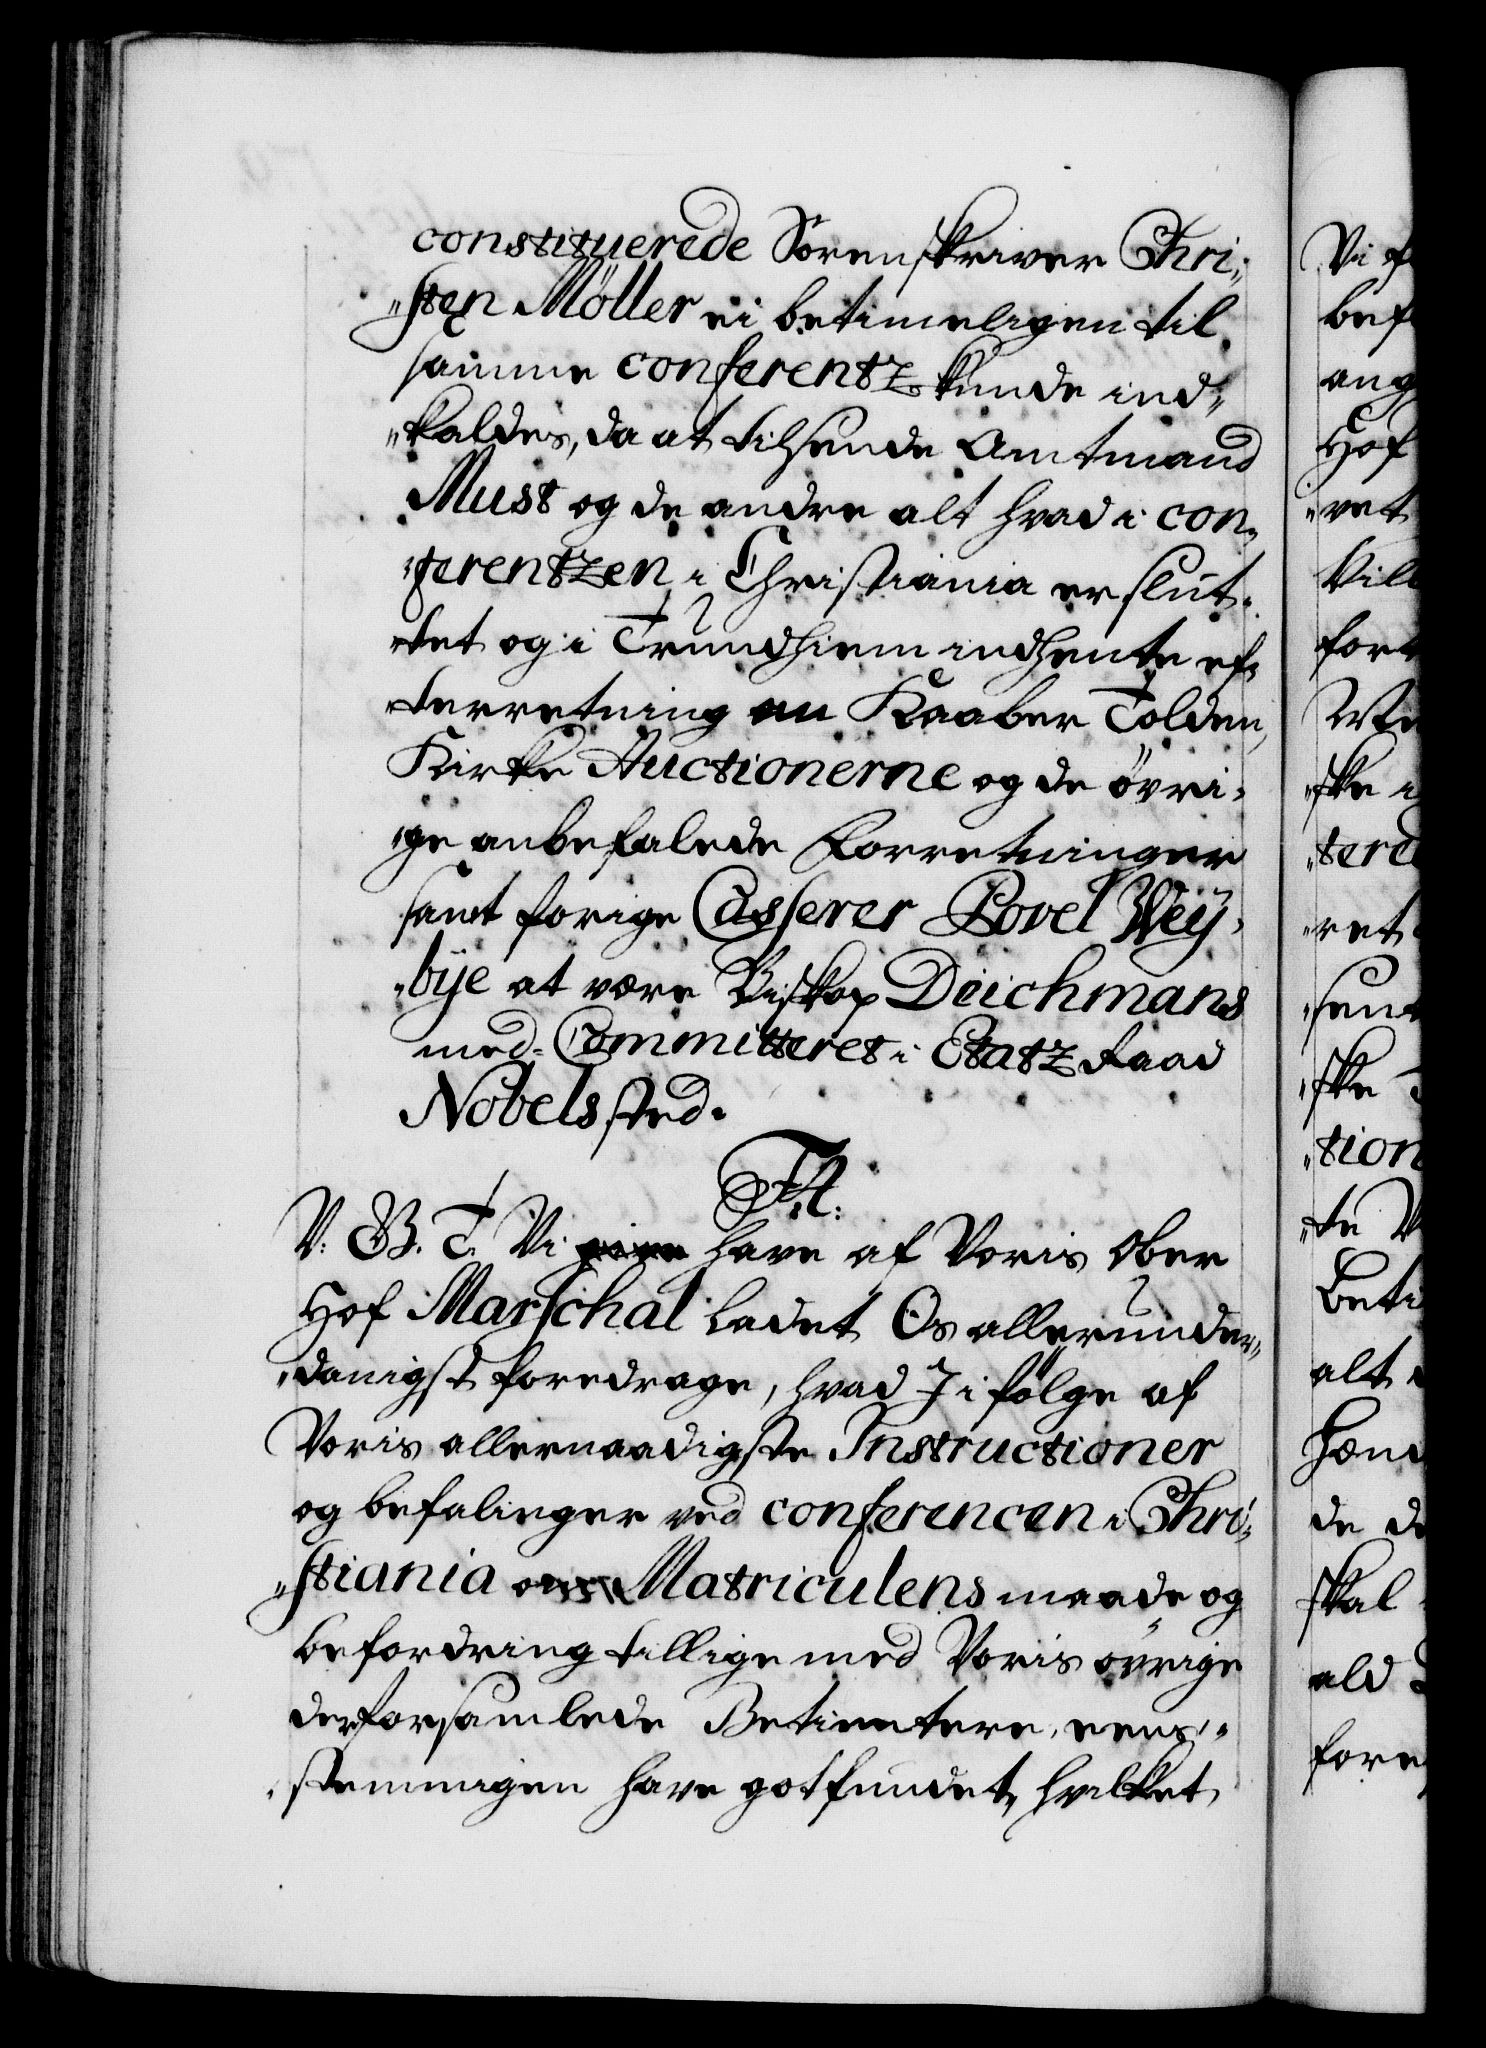 constituerede Sorenskriver Chri„
„sten Möller ei betimeligen til
samme conferentz kunde ind„
„kaldes, da at tilsende Amtmand
Must og de andre alt hvad i con„
„ferentzen i Christiania er slut„
„tet og i Trundhiem indhente ef„
„terretning om Kaaber Tolden,
Kirke Auctionerne og de övri„
„ge anbefalede Forretninger
samt forige Casserer Povel Weÿ„
„bÿe at være Biskop Deichmans
med-Committeret i Etatz Raad
Nobels sted.
F. A:
V: G. T. Vi have af Voris Ober
Hof Marschal ladet Os allerunder„
„danigst foredrage, hvad I i følge af
Voris allernaadigste Instructioner
og befalinger ved conferencen i Chri„
„stiania om Matriculens maade og
befordring tillige med Voris övrige
der forsamlede Betientere, eens„
„stemmigen have gotfundet, hvilket
Vi
bef
ang
Hof
„vet
Vil
for
„ske
„tere
„ret
„ske
„tion
„te V
Beti
alt
de de
skal
ald
fore